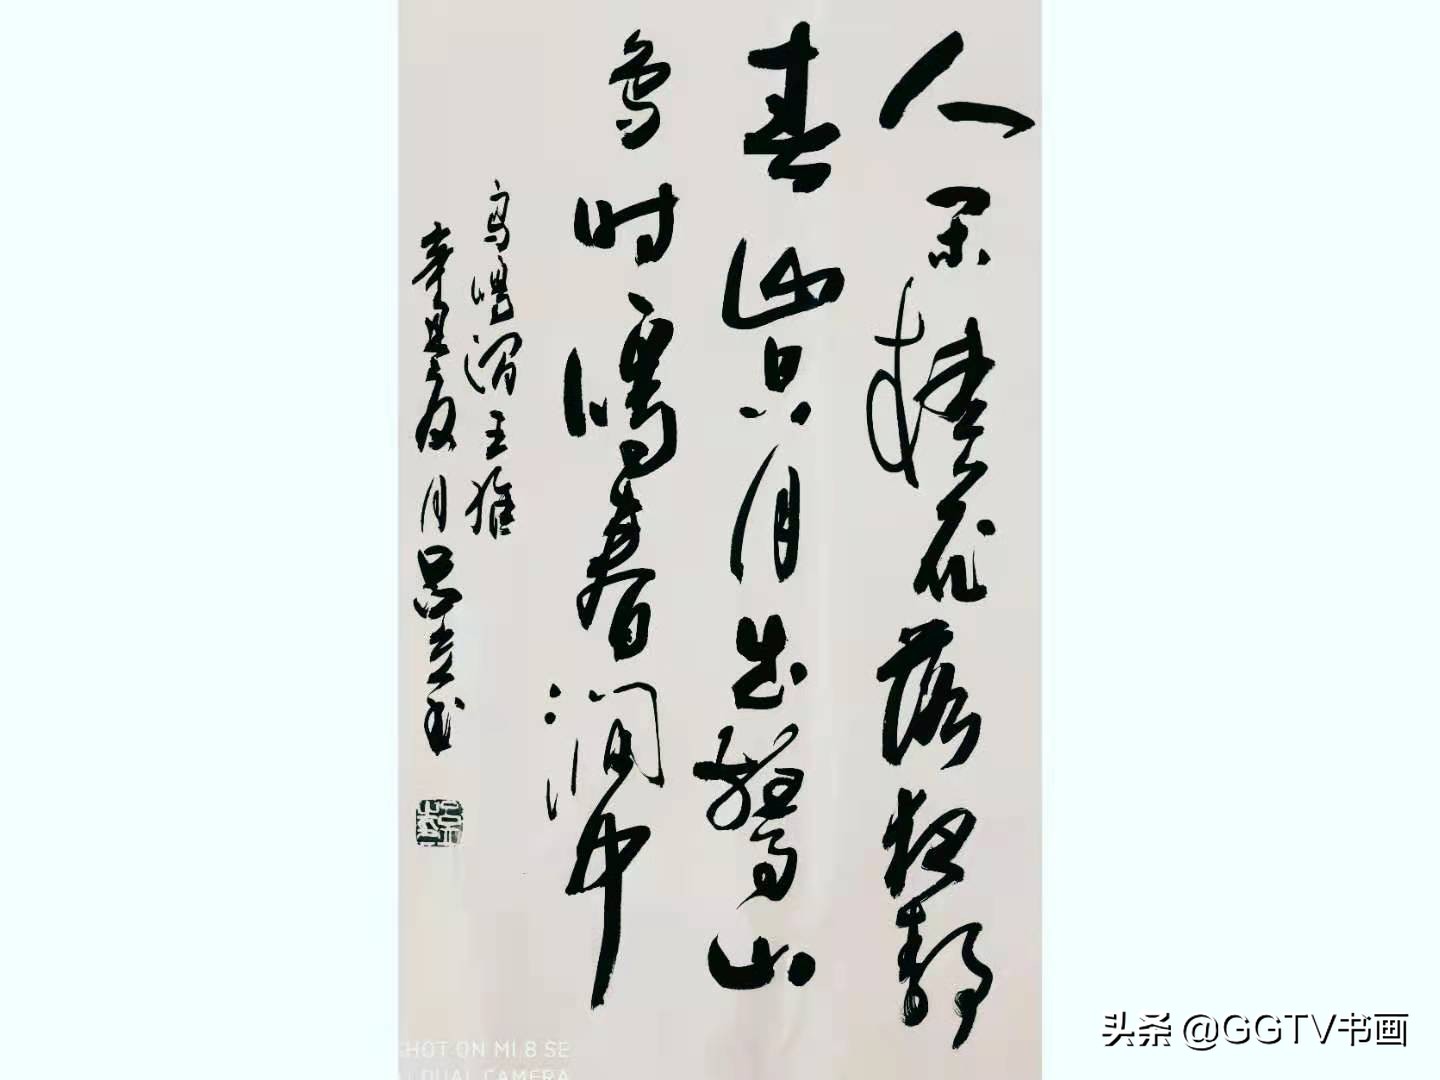 人闲桂花落夜静
春山空月出惊山
鸟时鸣春涧中
鸟鸣涧王维
辛丑夏月吕
SHOT ON MI 8 SE
AI DUAL CAMERA
头条 @GGTV书画